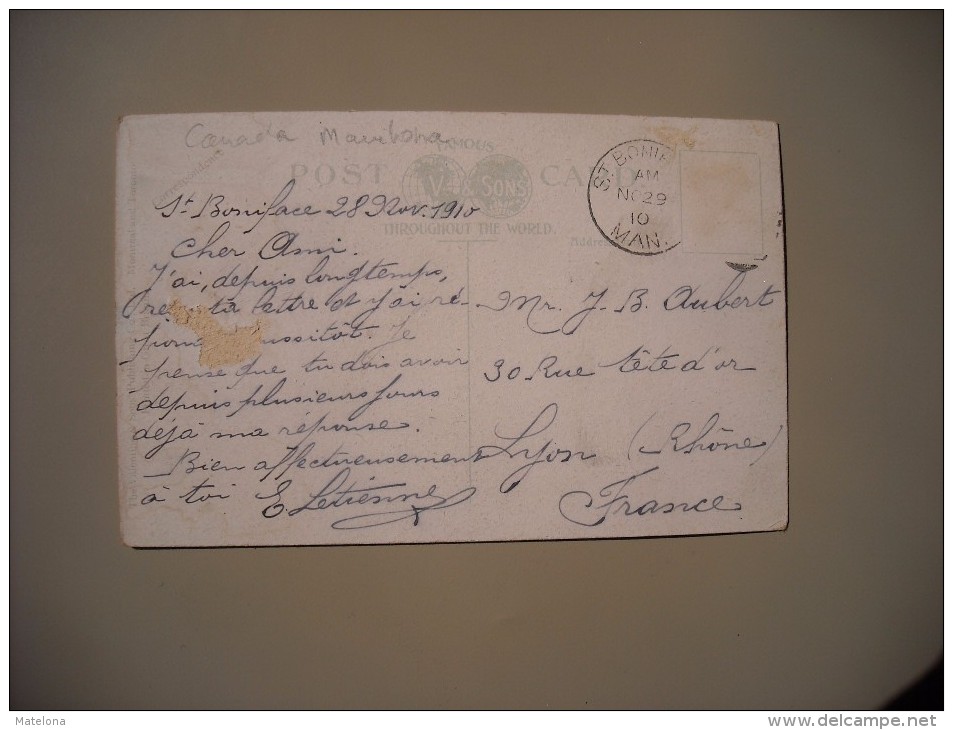 Canada Manitoba
FAMOUS
POST CARD
V & SONS
THROUGHOUT THE WORLD.
Address
ST. BONIF
AM
NO 29
10
MAN.
St Boniface 28 Nov. 1910
Cher Ami.
J'ai, depuis longtemps,
ta lettre et j'ai ré-
aussitôt. Je
pense que tu dois avoir
depuis plusieurs jours
déjà ma réponse.
Bien affectueusement
à toi E. Letienne
Mr. J. B. Aubert
30 Rue tête d'or
Lyon (Rhône)
France
Matelona
www.delcampe.net